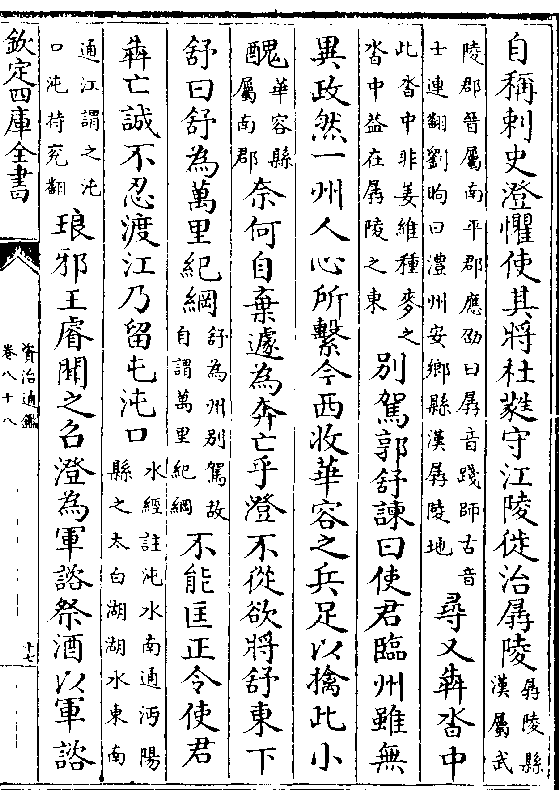 自稱刺史澄懼使其將杜蕤守江陵徙治孱陵孱陵縣漢屬武
陵郡晉屬南平郡應劭曰孱音踐師古音士連翻劉昫曰澧州安鄉縣漢孱陵地尋又犇沓中
此沓中非姜維種麥之沓中益在孱陵之東別駕郭舒諫曰使君臨州雖無
異政然一州人心所繫今西收華容之兵足以擒此小
醜華容縣屬南郡奈何自棄遽為奔亡乎澄不從欲將舒東下
舒曰舒為萬里紀綱舒為州別駕故自謂萬里紀綱不能匡正令使君
犇亡誠不忍渡江乃留屯沌口水經註沌水南通沔陽縣之太白湖湖水東南
通江謂之沌口沌持兖翻琅邪王睿聞之召澄為軍諮祭酒以軍諮
欽定四庫全書
資治通鑑
卷八十八
十七